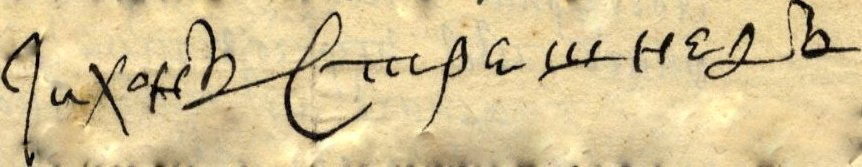 Тихонъ Стрешневъ